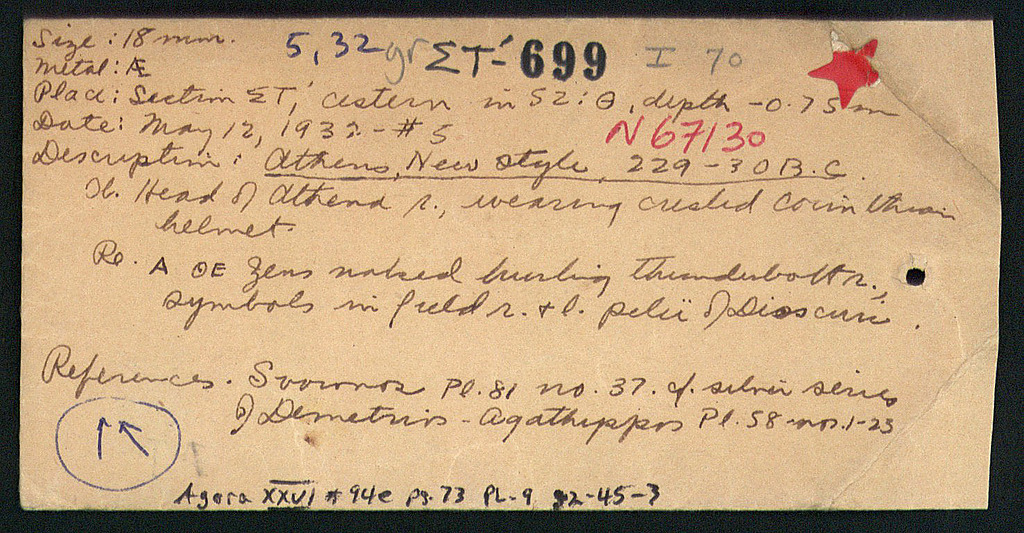 Size : 18 mm.
5,32 gr ΣΤ-'699 I 70
Metal : Æ
Place : Section ΣΤ,' cistern in 52 : Θ, depth -0.75 m
Date : May 12, 1932 - #5
N 67130
Description : Athens, New Style, 229-30 B.C.
Ob. Head of Athena r., wearing crested Corinthian
helmet
Re. A ΘΕ Zeus naked hurling thunderbolt r.,
symbols in field r. + l. pilei of Dioscuri.
References. Svoronos Pl. 81 no. 37. cf. silver series
of Demetrios - Agathippos Pl. 58 nos. 1-23
Agora XXVI # 94e pg. 73 PL. 9 -45-3